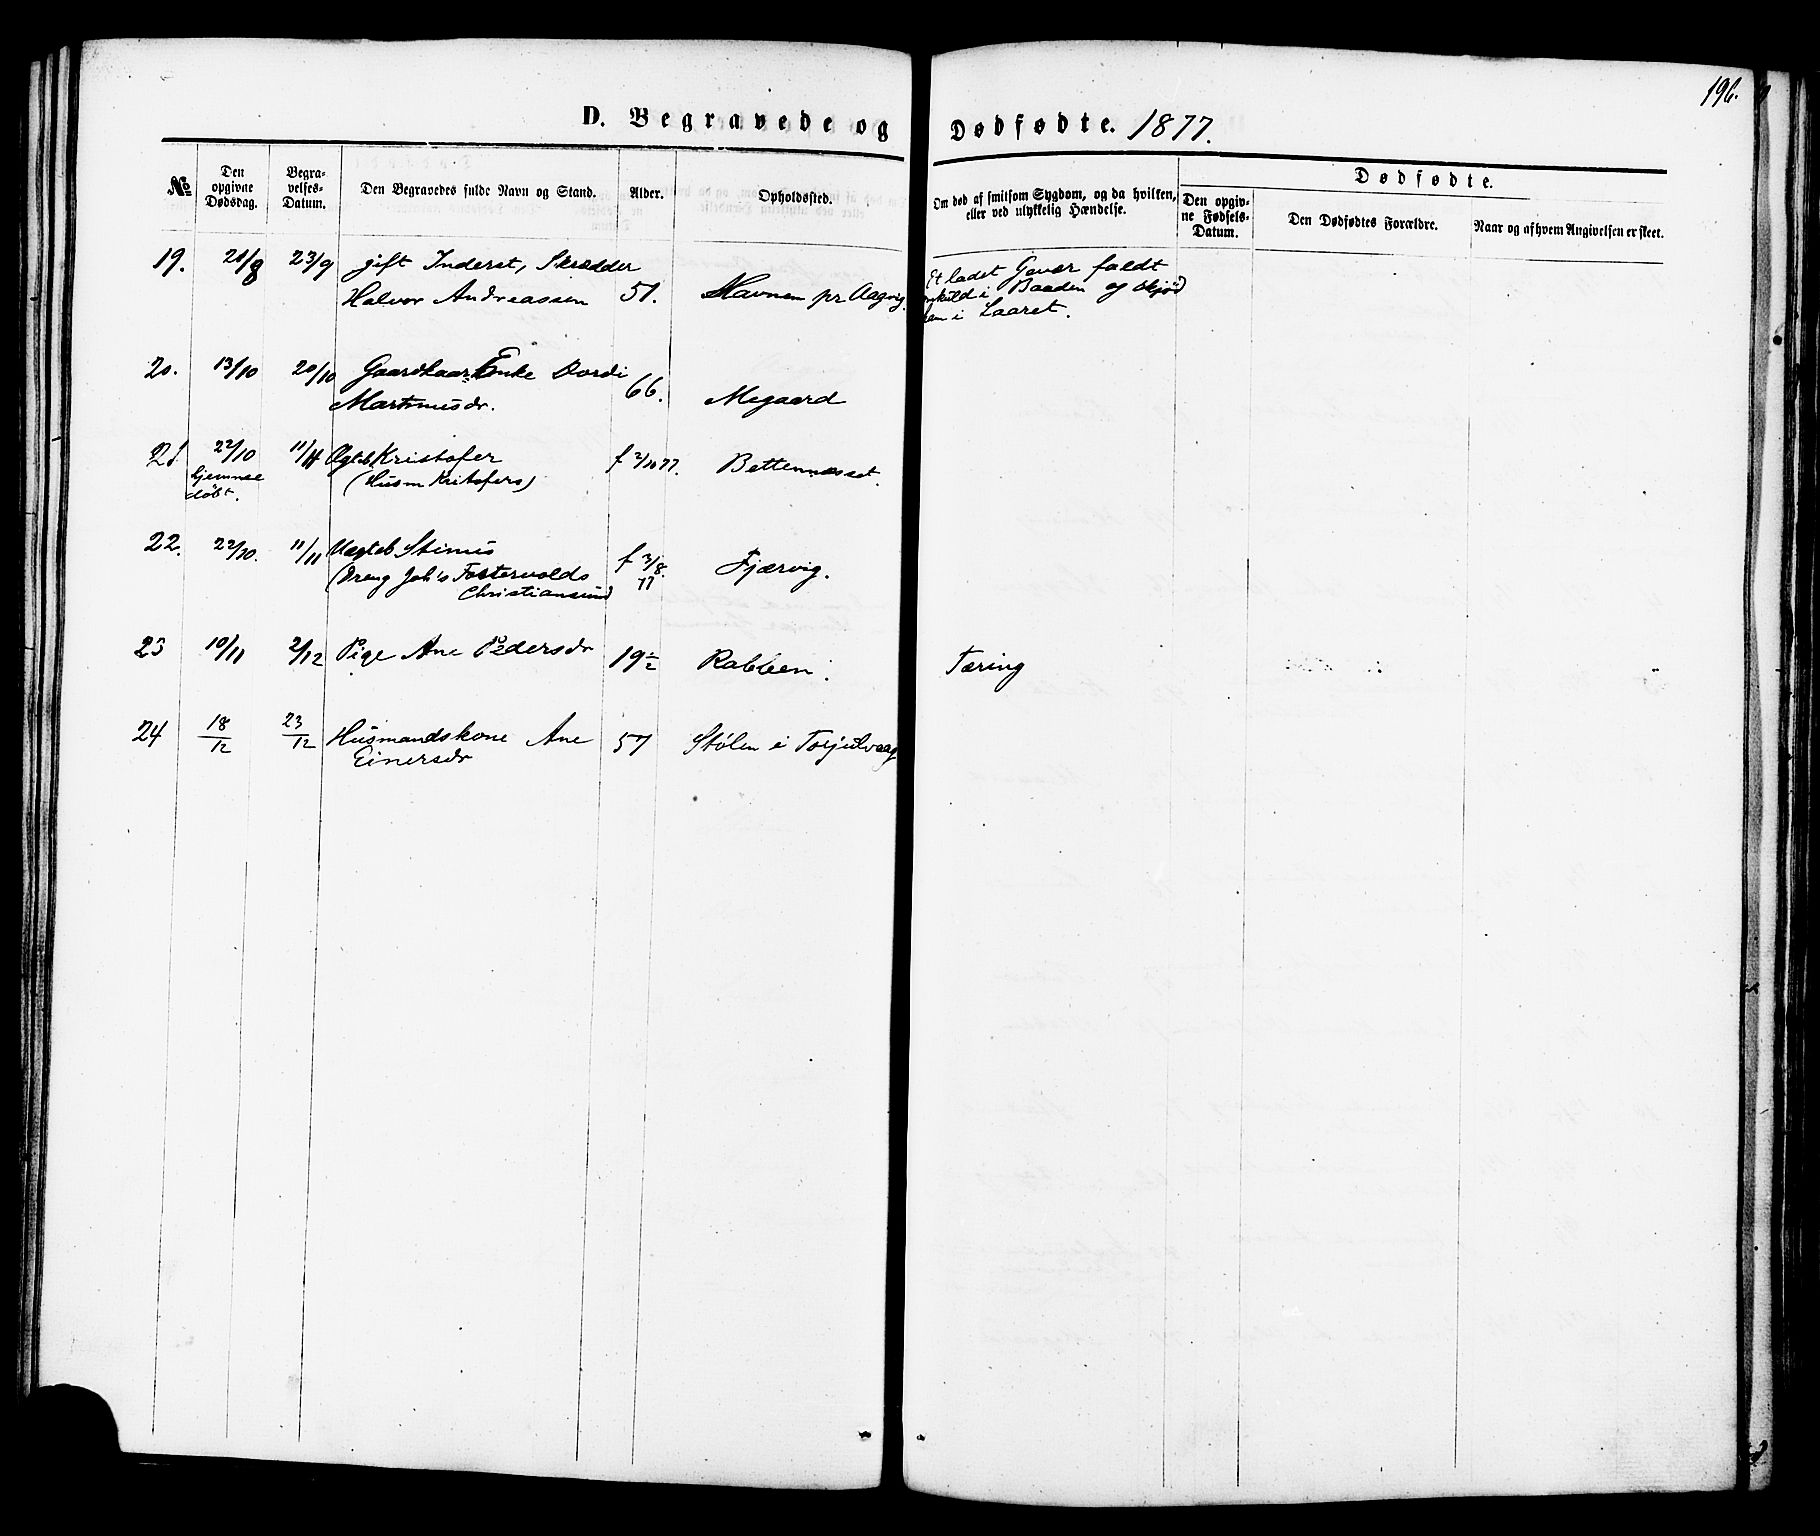 196.
D. Begravede og Dødfødte. 1877.
No
Den opgivne Dødsdag.
Begravelses-Datum.
Den Begravedes fulde Navn og Stand.
Alder.
Opholdssted.
Om død af smitsom Sygdom, og da hvilken, eller ved ulykkelig Hændelse.
Dødfødte.
Den opgivne Fødsels-Datum.
Den Dødfødtes Forældre.
Naar og af hvem Angivelsen er skeet.
19. 21/8 23/9 gift Inderst, Skrædder
Halvor Andreassen 51. Havnen pr Aagvig.
Et ladet Gevær faldt
i Baaden og skjød
i Laaret.
20. 13/10 20/10 Gaardkaar Enke Dordi
Martinusdr. 66. Megaard
21 22/10 11/11 Ægteb Kristofer f 2/10 77. Bettennesset.
hjemme
døbt.
(Husm Kristofers)
22. 22/10. 11/11 Uægteb Stinus f 3/8. 77 Fjærvig.
(Dreng Joh's Fostervolds
Christiansund
23 10/11 2/12 Pige Ane Pedersdr 19 1/2 Rabben. Tæring
24 18/12 23/12 Husmandskone Ane 57 Stølen i Torjulvaag
Einersdr